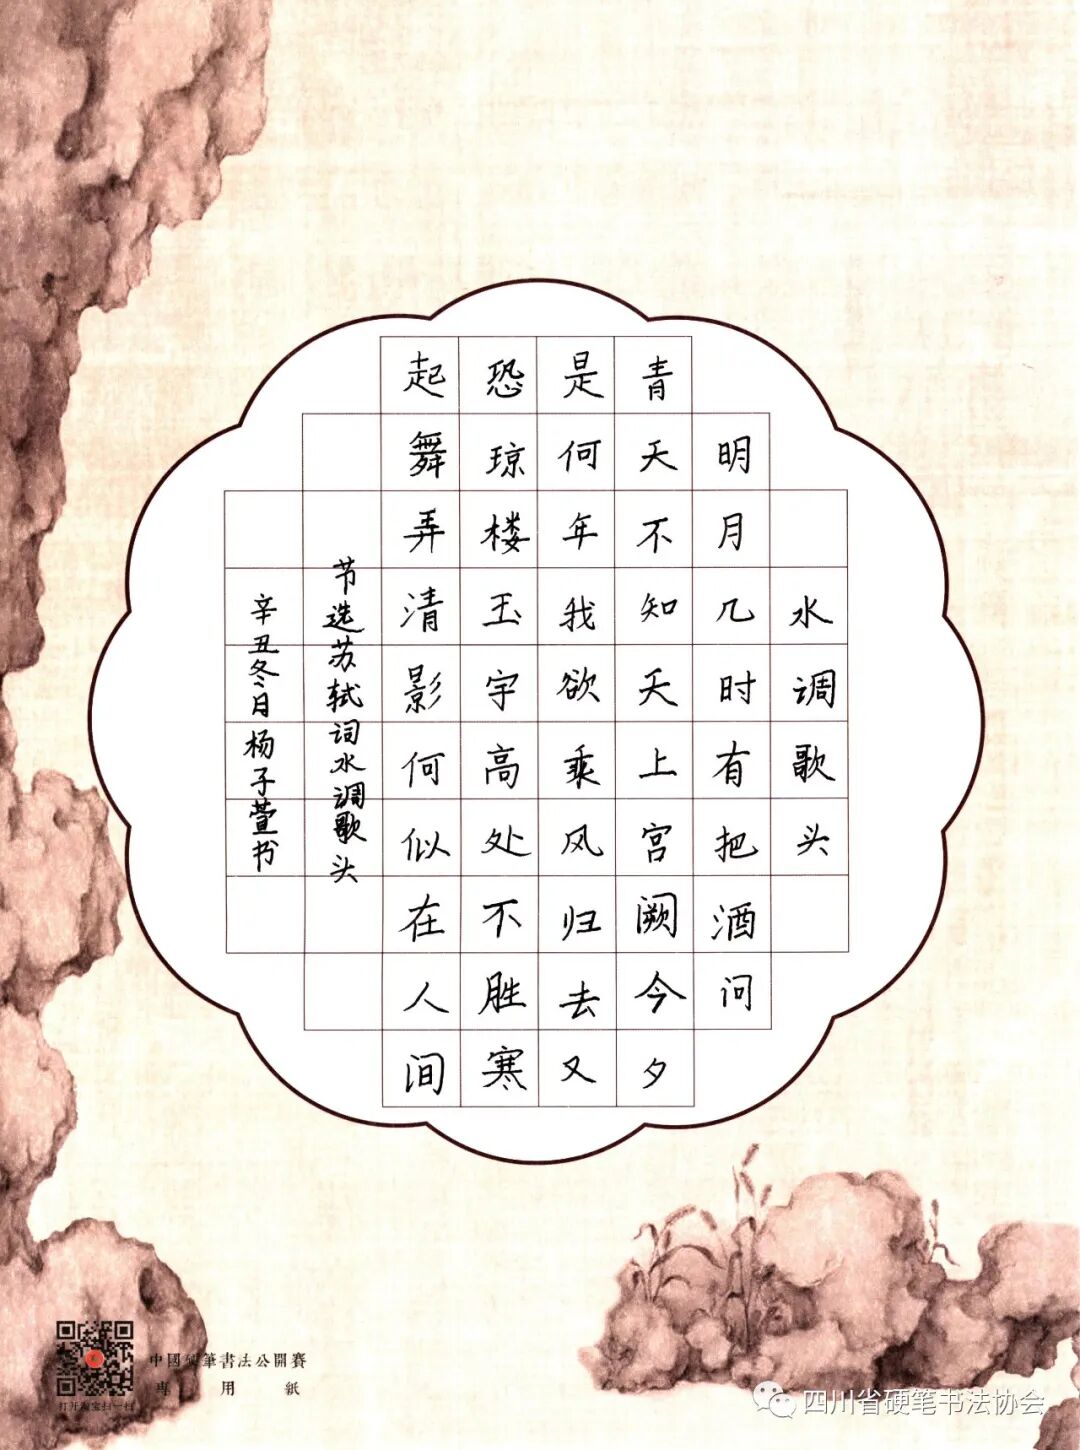 水调歌头
明月几时有把酒问
青天不知天上宫阙今夕
是何年我欲乘风归去又
恐琼楼玉宇高处不胜寒
起舞弄清影何似在人间
节选苏轼词水调歌头
辛丑冬月杨子萱书
中國硬筆書法公開賽
專用紙
打开淘宝扫一扫
四川省硬笔书法协会